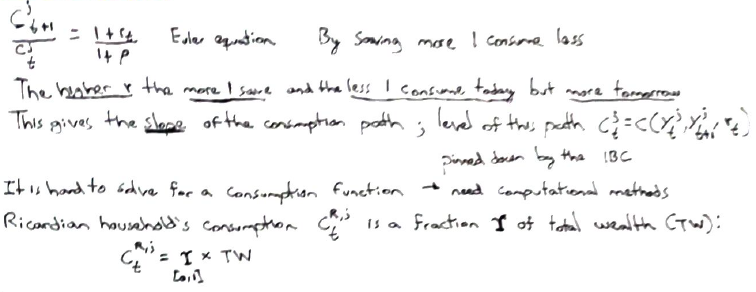 C^j_{t+1} / C^j_t = 1+r_t / 1+ρ Euler equation By saving more I consume less
The higher r the more I save and the less I consume today but more tomorrow
This gives the slope of the consumption path ; level of this path C^j_t = C(Y^j_t, Y^j_{t+1}, r_t)
pinned down by the IBC
It is hard to solve for a consumption function → need computational methods
Ricardian household's consumption C^{R,j}_t is a fraction ϒ of total wealth (TW):
C^{R,j}_t = ϒ × TW
[0,1]